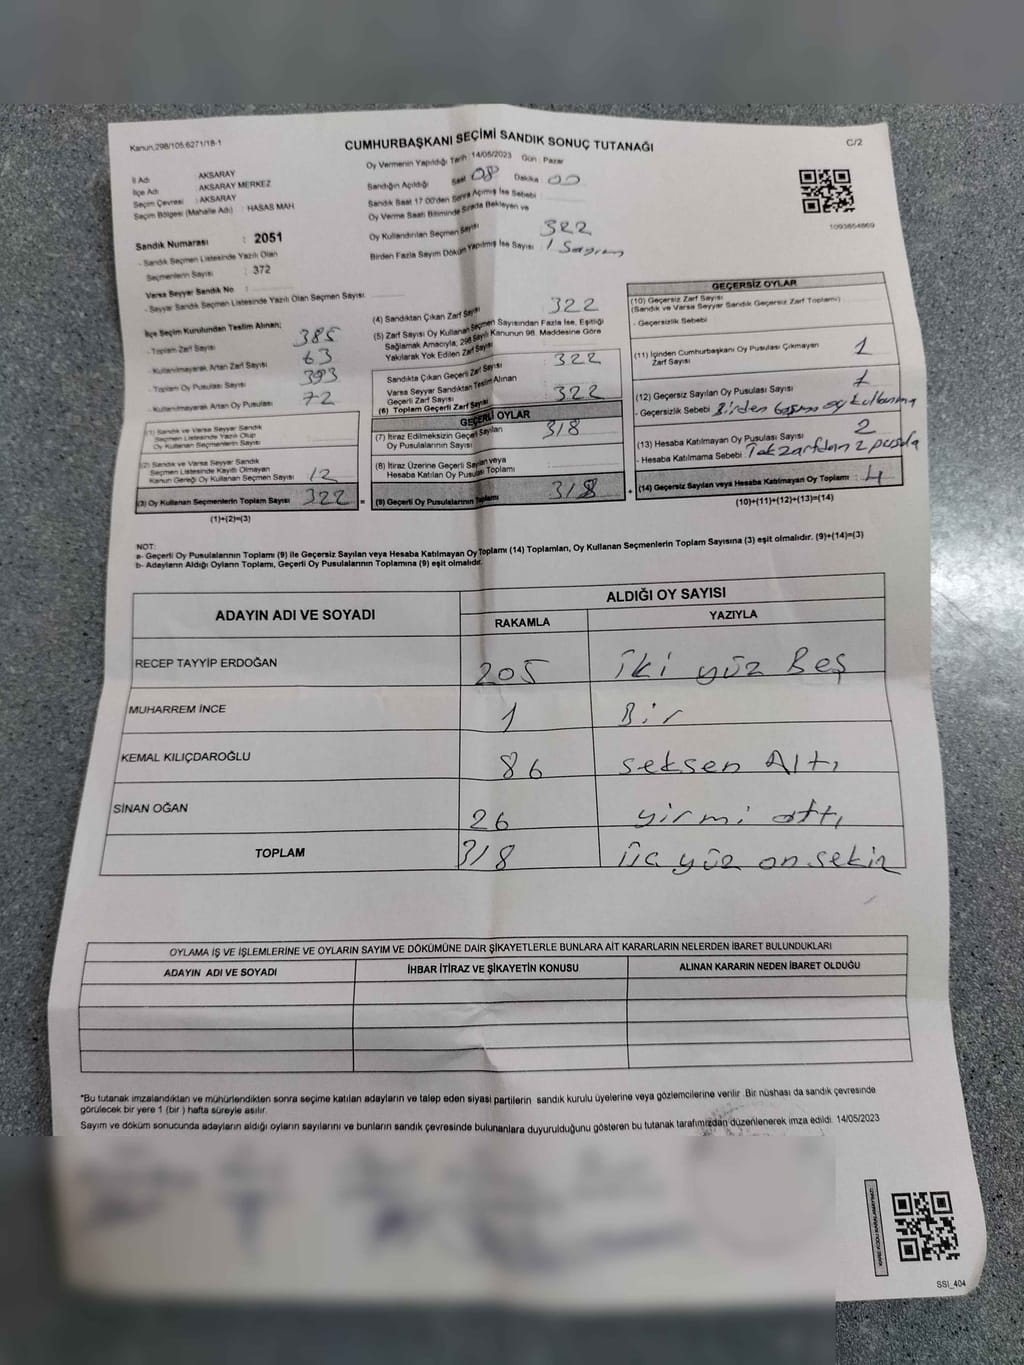 Kanun,298/105,6271/18-1
CUMHURBAŞKANI SEÇİMİ SANDIK SONUÇ TUTANAĞI
C/2
İl Adı : AKSARAY
İlçe Adı : AKSARAY MERKEZ
Seçim Çevresi : AKSARAY
Seçim Bölgesi (Mahalle Adı) : HASAS MAH
Sandık Numarası : 2051
- Sandık Seçmen Listesinde Yazılı Olan
Seçmenlerin Sayısı : 372
Varsa Seyyar Sandık No :
- Seyyar Sandık Seçmen Listesinde Yazılı Olan Seçmen Sayısı:
Oy Vermenin Yapıldığı Tarih 14/05/2023 Gün : Pazar
Sandığın Açıldığı Saat 08 Dakika : 00
Sandık Saat 17:00'den Sonra Açılmış İse Sebebi
Oy Verme Saati Bitiminde Sırada Bekleyen ve
Oy Kullandırılan Seçmen Sayısı : 322
Birden Fazla Sayım Döküm Yapılmış İse Sayısı : 1 Sayım
1093854869
İlçe Seçim Kurulundan Teslim Alınan;
- Toplam Zarf Sayısı : 385
- Kullanılmayarak Artan Zarf Sayısı : 63
- Toplam Oy Pusulası Sayısı : 393
- Kullanılmayarak Artan Oy Pusulası : 72
(1) Sandık ve Varsa Seyyar Sandık
Seçmen Listesinde Yazılı Olup
Oy Kullanan Seçmenlerin Sayısı
(2) Sandık ve Varsa Seyyar Sandık
Seçmen Listesinde Kaydı Olmayan
Kanun Gereği Oy Kullanan Seçmen Sayısı : 12
(3) Oy Kullanan Seçmenlerin Toplam Sayısı : 322 =
(1)+(2)=(3)
(4) Sandıktan Çıkan Zarf Sayısı : 322
(5) Zarf Sayısı Oy Kullanan Seçmen Sayısından Fazla İse, Eşitliği
Sağlamak Amacıyla, 298 Sayılı Kanunun 98. Maddesine Göre
Yakılarak Yok Edilen Zarf Sayısı
Sandıkta Çıkan Geçerli Zarf Sayısı : 322
Varsa Seyyar Sandıktan Teslim Alınan
Geçerli Zarf Sayısı
(6) Toplam Geçerli Zarf Sayısı : 322
GEÇERLİ OYLAR
(7) İtiraz Edilmeksizin Geçerli Sayılan
Oy Pusulalarının Sayısı : 318
(8) İtiraz Üzerine Geçerli Sayılan veya
Hesaba Katılan Oy Pusulası Toplamı
(9) Geçerli Oy Pusulalarının Toplamı : 318 +
GEÇERSİZ OYLAR
(10) Geçersiz Zarf Sayısı
(Sandık ve Varsa Seyyar Sandık Geçersiz Zarf Toplamı)
- Geçersizlik Sebebi
(11) İçinden Cumhurbaşkanı Oy Pusulası Çıkmayan
Zarf Sayısı : 1
(12) Geçersiz Sayılan Oy Pusulası Sayısı : 1
- Geçersizlik Sebebi Birden oy kullanma
(13) Hesaba Katılmayan Oy Pusulası Sayısı : 2
- Hesaba Katılmama Sebebi : Tek zarfdan 2 pusula
(14) Geçersiz Sayılan veya Hesaba Katılmayan Oy Toplamı : 4
(10)+(11)+(12)+(13)=(14)
NOT:
a- Geçerli Oy Pusulalarının Toplamı (9) ile Geçersiz Sayılan veya Hesaba Katılmayan Oy Toplamı (14) Toplamları, Oy Kullanan Seçmenlerin Toplam Sayısına (3) eşit olmalıdır. (9)+(14)=(3)
b- Adayların Aldığı Oyların Toplamı, Geçerli Oy Pusulalarının Toplamına (9) eşit olmalıdır.
ADAYIN ADI VE SOYADI ALDIĞI OY SAYISI
RAKAMLA YAZIYLA
RECEP TAYYİP ERDOĞAN 205 iki yüz Beş
MUHARREM İNCE 1 Bir
KEMAL KILIÇDAROĞLU 86 seksen Altı
SİNAN OĞAN 26 yirmi altı
TOPLAM 318 üç yüz on sekiz
OYLAMA İŞ VE İŞLEMLERİNE VE OYLARIN SAYIM VE DÖKÜMÜNE DAİR ŞİKAYETLERLE BUNLARA AİT KARARLARIN NELERDEN İBARET BULUNDUKLARI
ADAYIN ADI VE SOYADI İHBAR İTİRAZ VE ŞİKAYETİN KONUSU ALINAN KARARIN NEDEN İBARET OLDUĞU
*Bu tutanak imzalandıktan ve mühürlendikten sonra seçime katılan adayların ve talep eden siyasi partilerin sandık kurulu üyelerine veya gözlemcilerine verilir. Bir nüshası da sandık çevresinde
görülecek bir yere 1 (bir ) hafta süreyle asılır.
Sayım ve döküm sonucunda adayların aldığı oyların sayılarını ve bunların sandık çevresinde bulunanlara duyurulduğunu gösteren bu tutanak tarafımızdan düzenlenerek imza edildi. 14/05/2023
SSI_404